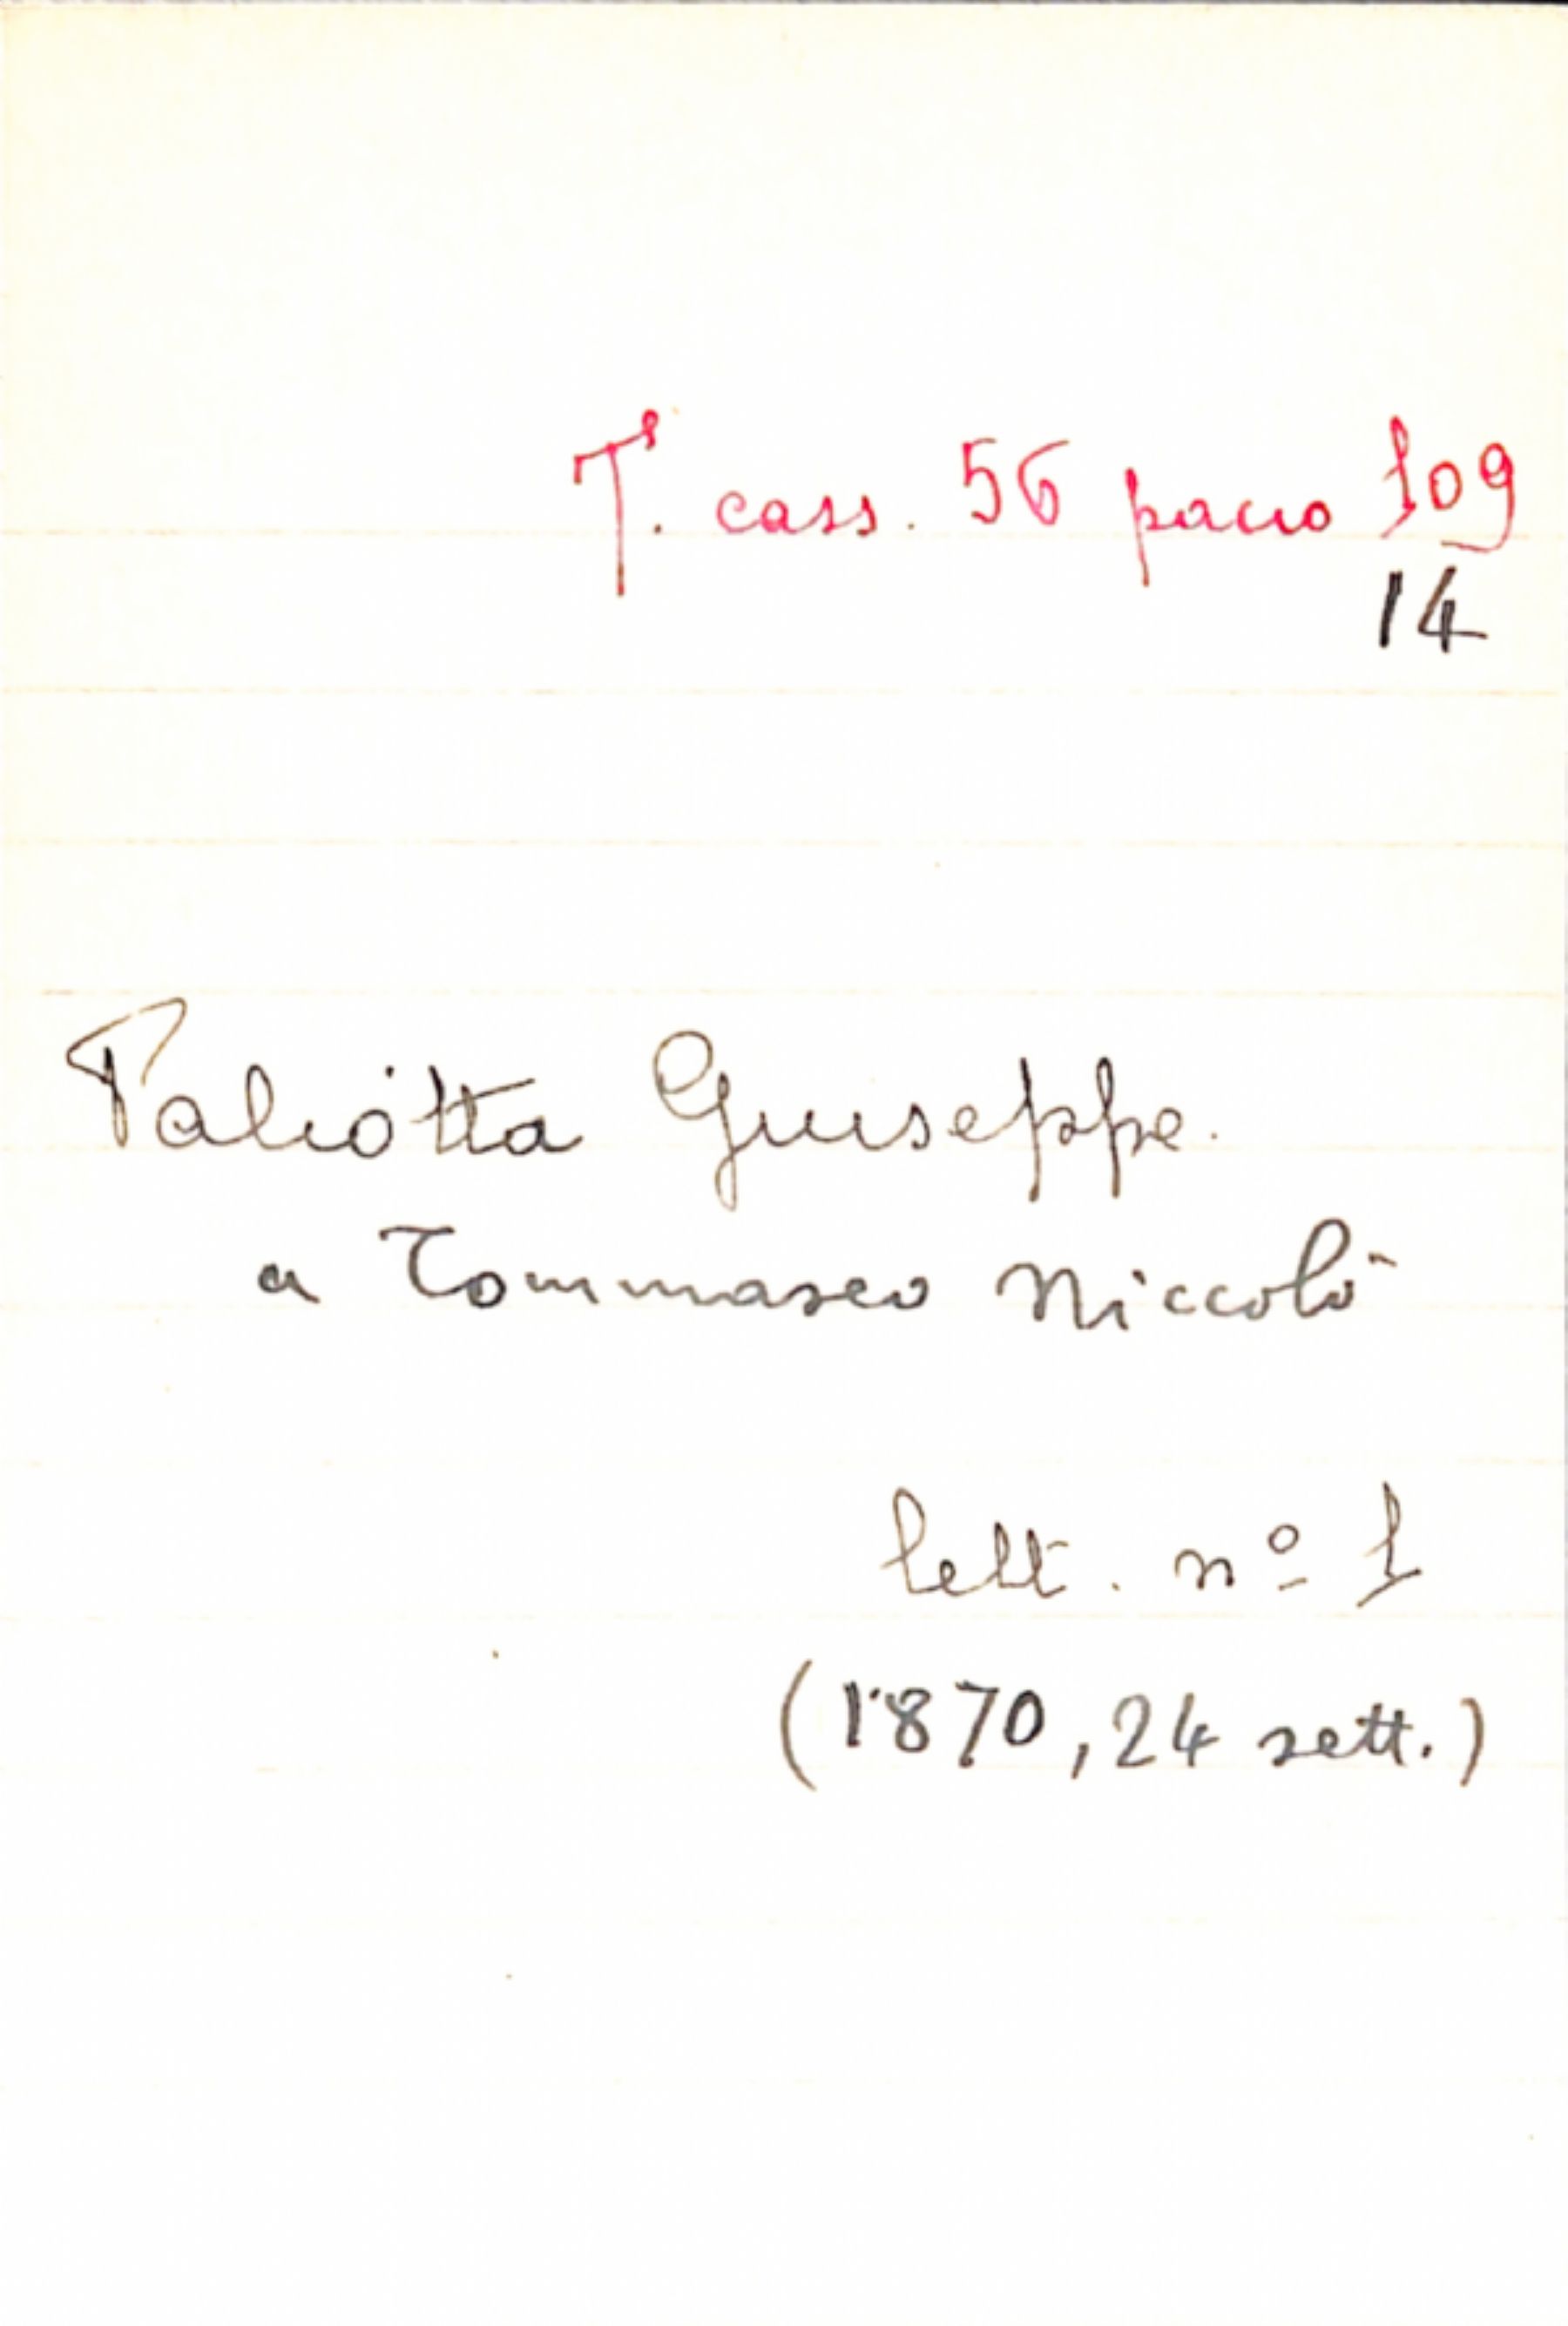 T. cass. 56 pacco 109
14
Paliotta Giuseppe.
a Tommaseo Niccolò
lett. nº 1
(1870, 24 sett.)